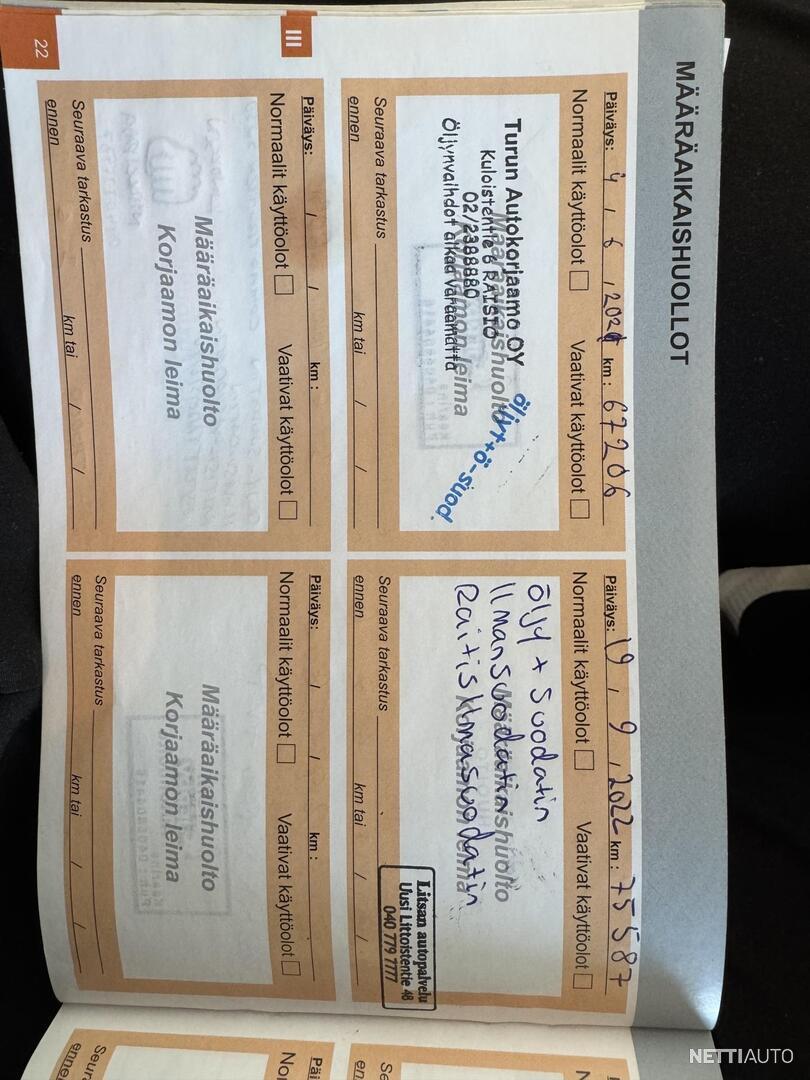 MÄÄRÄAIKAISHUOLLOT
Päiväys: 4 / 6 / 2021 km : 67206
Normaalit käyttöolot Vaativat käyttöolot
Turun Autokorjaamo OY
Kuloistentie 6 RAISIO
02/2388880
Öljynvaihdot aikaa varaamatta
Määräaikaishuolto
Korjaamon leima
öljyt+ö-suod.
Seuraava tarkastus
ennen km tai / /
Päiväys: 19 , 9 , 2022 km : 75587
Normaalit käyttöolot Vaativat käyttöolot
Öljy + Suodatin
Ilmansuodatin
Raitisilmasuodatin
Määräaikaishuolto
Korjaamon leima
Litsan autopalvelu
Uusi Littoistentie 48
040 779 7777
Seuraava tarkastus
ennen km tai / /
III
Päiväys: / / km :
Normaalit käyttöolot Vaativat käyttöolot
Määräaikaishuolto
Korjaamon leima
Seuraava tarkastus
ennen km tai / /
Päiväys: / / km :
Normaalit käyttöolot Vaativat käyttöolot
Määräaikaishuolto
Korjaamon leima
Seuraava tarkastus
ennen km tai / /
22
NETTIAUTO